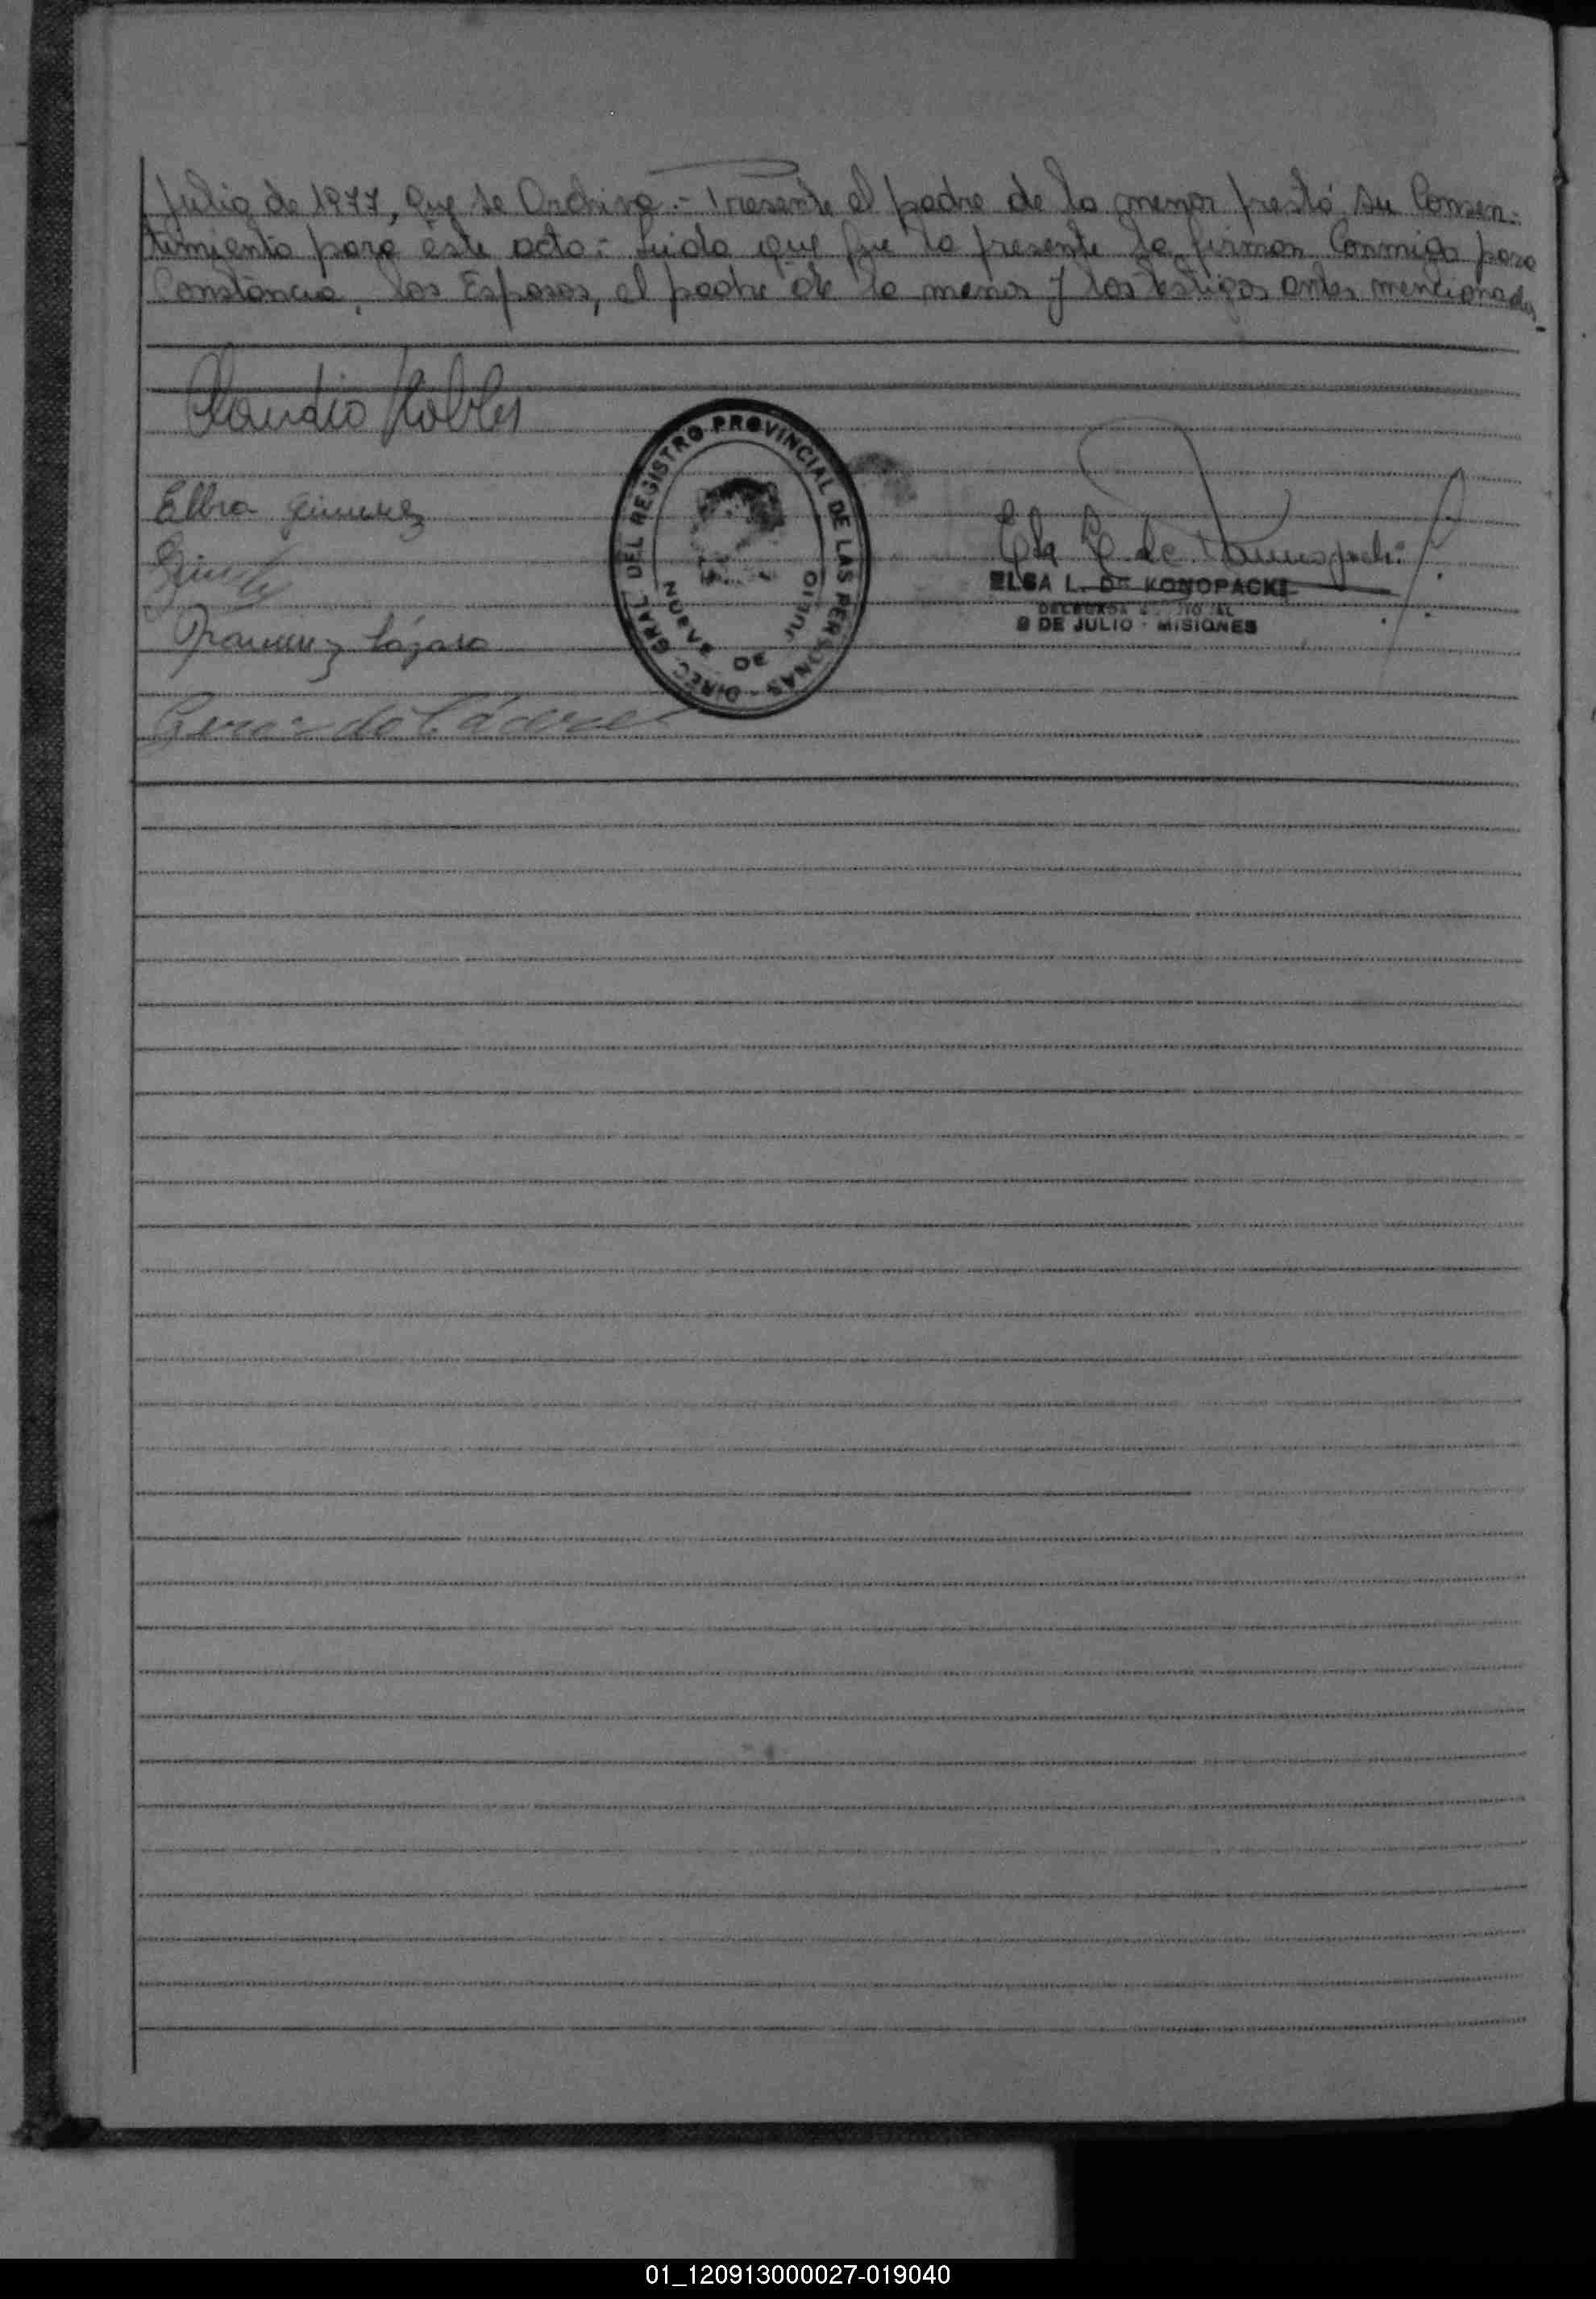 Julio de 1977, que se Archiva.- Presente el padre de la menor prestó su Consen-
timiento para éste acto.- Leida que fue la presente la firman Conmigo para
Constancia, los Esposos, el padre de la menor y los testigos antes mencionados.-
Claudio Robles
Elba Gimenez
Ramirez Lázaro
Gerardo Cácere
DIREC. GRAL. DEL REGISTRO PROVINCIAL DE LAS PERSONAS
NUEVE DE JULIO
Elsa L. de Konopacki
ELSA L. DE KONOPACKI
9 DE JULIO - MISIONES
01_120913000027-019040